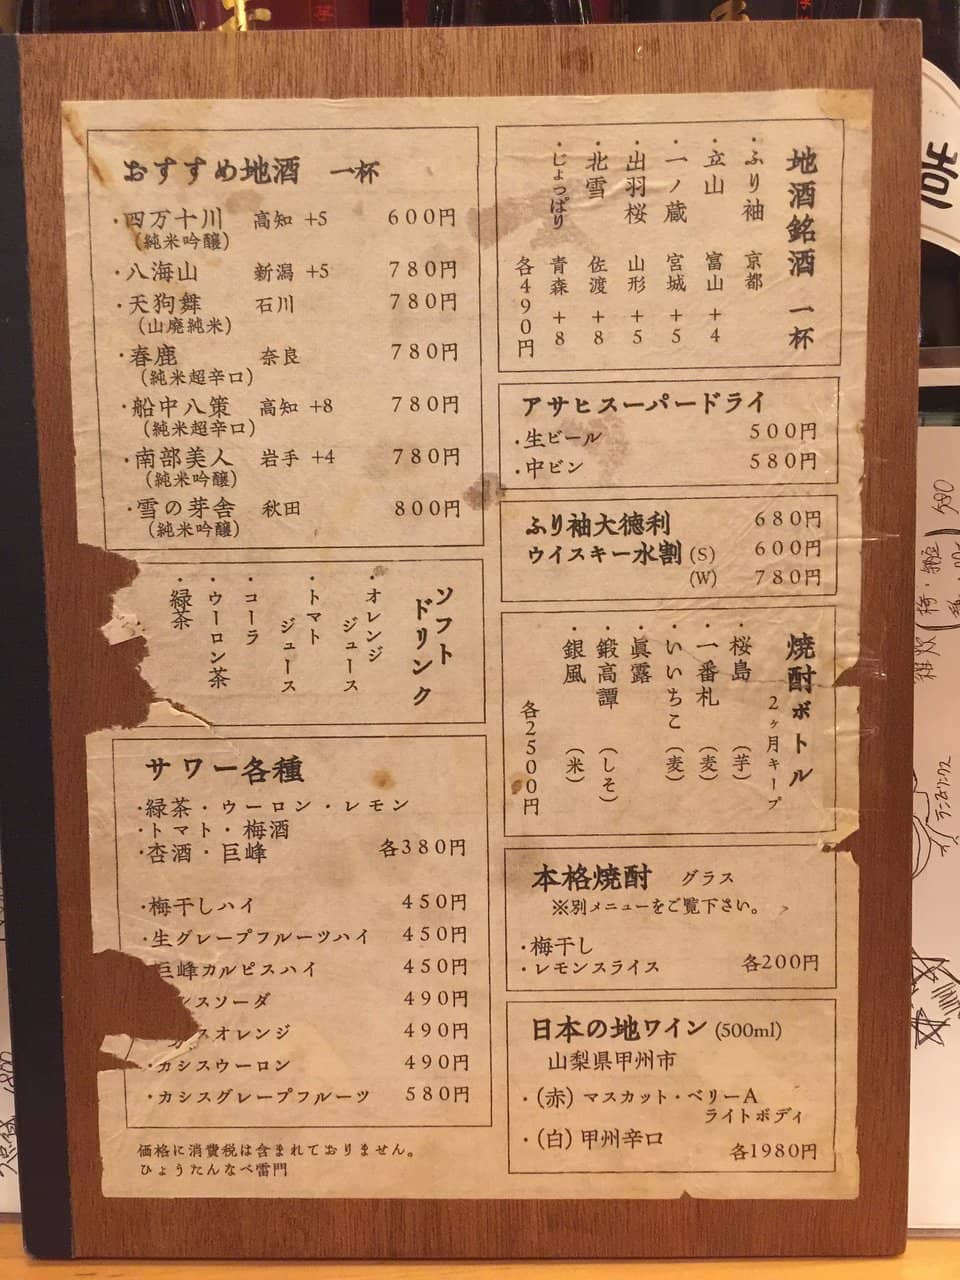 おすすめ地酒 一杯
・四万十川 高知 +5 600円
(純米吟醸)
・八海山 新潟 +5 780円
・天狗舞 石川 780円
(山廃純米)
・春鹿 奈良 780円
(純米超辛口)
・船中八策 高知 +8 780円
(純米超辛口)
・南部美人 岩手 +4 780円
(純米吟醸)
・雪の芽舎 秋田 800円
(純米吟醸)
地酒銘酒 一杯
・ふり袖 京都
・立山 富山 +4
・一ノ蔵 宮城 +5
・出羽桜 山形 +5
・北雪 佐渡 +8
・じょっぱり 青森 +8
各490円
アサヒスーパードライ
・生ビール 500円
・中ビン 580円
ふり袖大徳利 680円
ウイスキー水割 (S) 600円
(W) 780円
ソフト
ドリンク
・オレンジ
ジュース
・トマト
ジュース
・コーラ
・ウーロン茶
・緑茶
焼酎ボトル
2ヶ月キープ
・桜島 (芋)
・一番札 (麦)
・いいちこ (麦)
・眞露
・鍛高譚 (しそ)
・銀風 (米)
各2500円
サワー各種
・緑茶・ウーロン・レモン
・トマト・梅酒
・杏酒・巨峰 各380円
・梅干しハイ 450円
・生グレープフルーツハイ 450円
巨峰カルピスハイ 450円
シスソーダ 490円
スオレンジ 490円
・カシスウーロン 490円
・カシスグレープフルーツ 580円
本格焼酎 グラス
※別メニューをご覧下さい。
・梅干し
・レモンスライス 各200円
日本の地ワイン (500ml)
山梨県甲州市
・(赤) マスカット・ベリーA
ライトボディ
・(白) 甲州辛口
各1980円
価格に消費税は含まれておりません。
ひょうたんなべ雷門